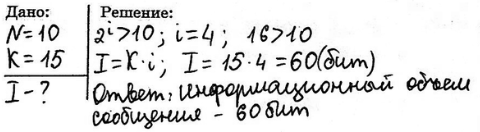 Дано: Решение:
N=10 2^i>10; i=4; 16>10
K=15 I=K·i; I=15·4=60(бит)
I-? Ответ: информационный объем
сообщения - 60бит